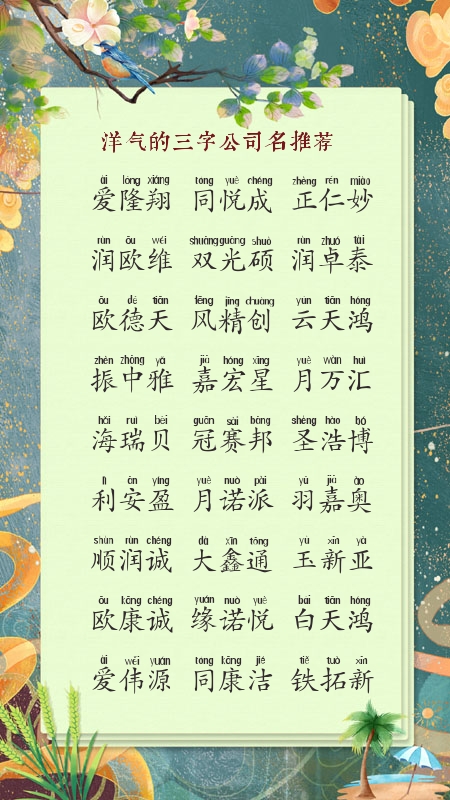 洋气的三字公司名推荐
ài lóng xiáng tóng yuè chéng zhèng rén miào
爱隆翔 同悦成 正仁妙
rùn ōu wéi shuāng guāng shuò rùn zhuó tài
润欧维 双光硕 润卓泰
ōu dé tiān fēng jīng chuàng yún tiān hóng
欧德天 风精创 云天鸿
zhèn zhōng yǎ jiā hóng xīng yuè wàn huì
振中雅 嘉宏星 月万汇
hǎi ruì bèi guān sài bāng shèng hào bó
海瑞贝 冠赛邦 圣浩博
lì ān yíng yuè nuò pài yǔ jiā ào
利安盈 月诺派 羽嘉奥
shùn rùn chéng dà xīn tōng yù xīn yà
顺润诚 大鑫通 玉新亚
ōu kāng chéng yuán nuò yuè bái tiān hóng
欧康诚 缘诺悦 白天鸿
ài wěi yuán tóng kāng jié tiě tuò xīn
爱伟源 同康洁 铁拓新